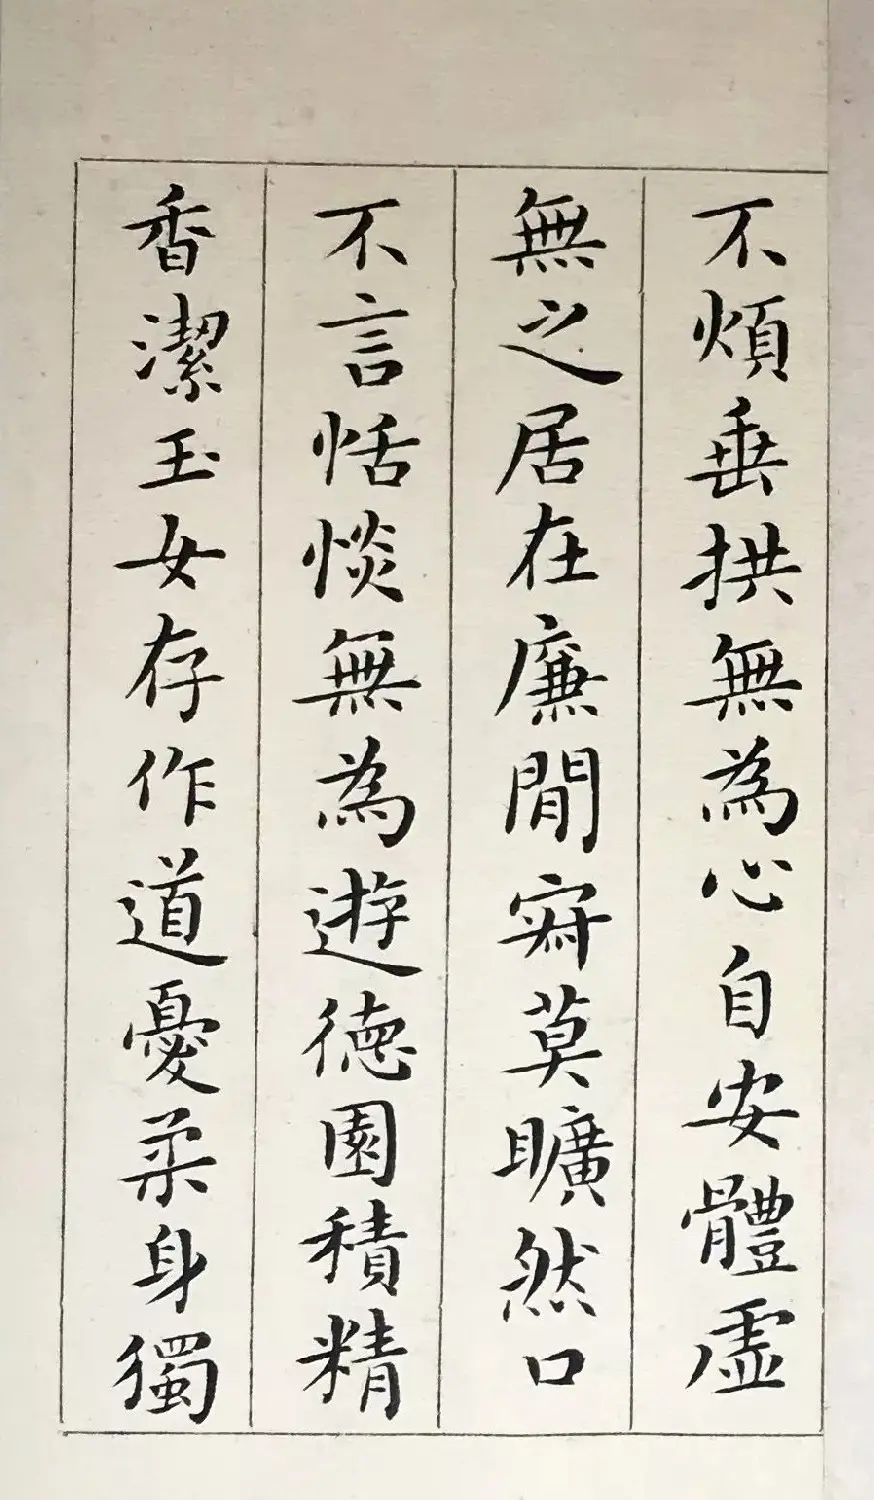 不煩垂拱無為心自安體虛
無之居在廉間寂莫曠然口
不言恬惔無為遊德園積精
香潔玉女存作道憂柔身獨